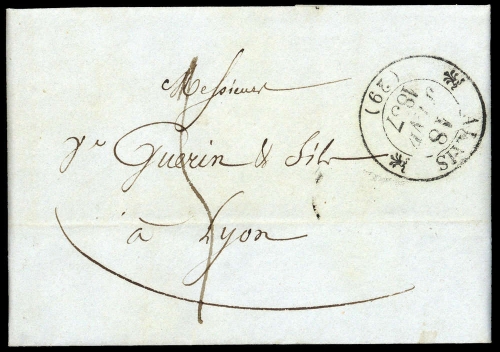 Messieurs
Vve Guerin & Fils
à Lyon
5
ALAIS
18
JANV
1837
(29)